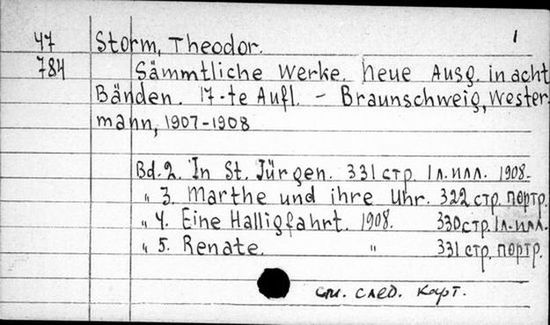 47 Storm, Theodor. 1
784 Sämmtliche Werke. Neue Ausg. in acht
Bänden. 17-te Aufl. – Braunschweig, Wester-
mann, 1907-1908
Bd. 2. In St. Jürgen. 331 стр. 1 л. илл. 1908.
„ 3. Marthe und ihre Uhr. 322 стр. портр.
„ 4. Eine Halligfahrt. 1908. 330 стр. 1 л. илл.
„ 5. Renate. „ 331 стр. портр.
см. след. карт.